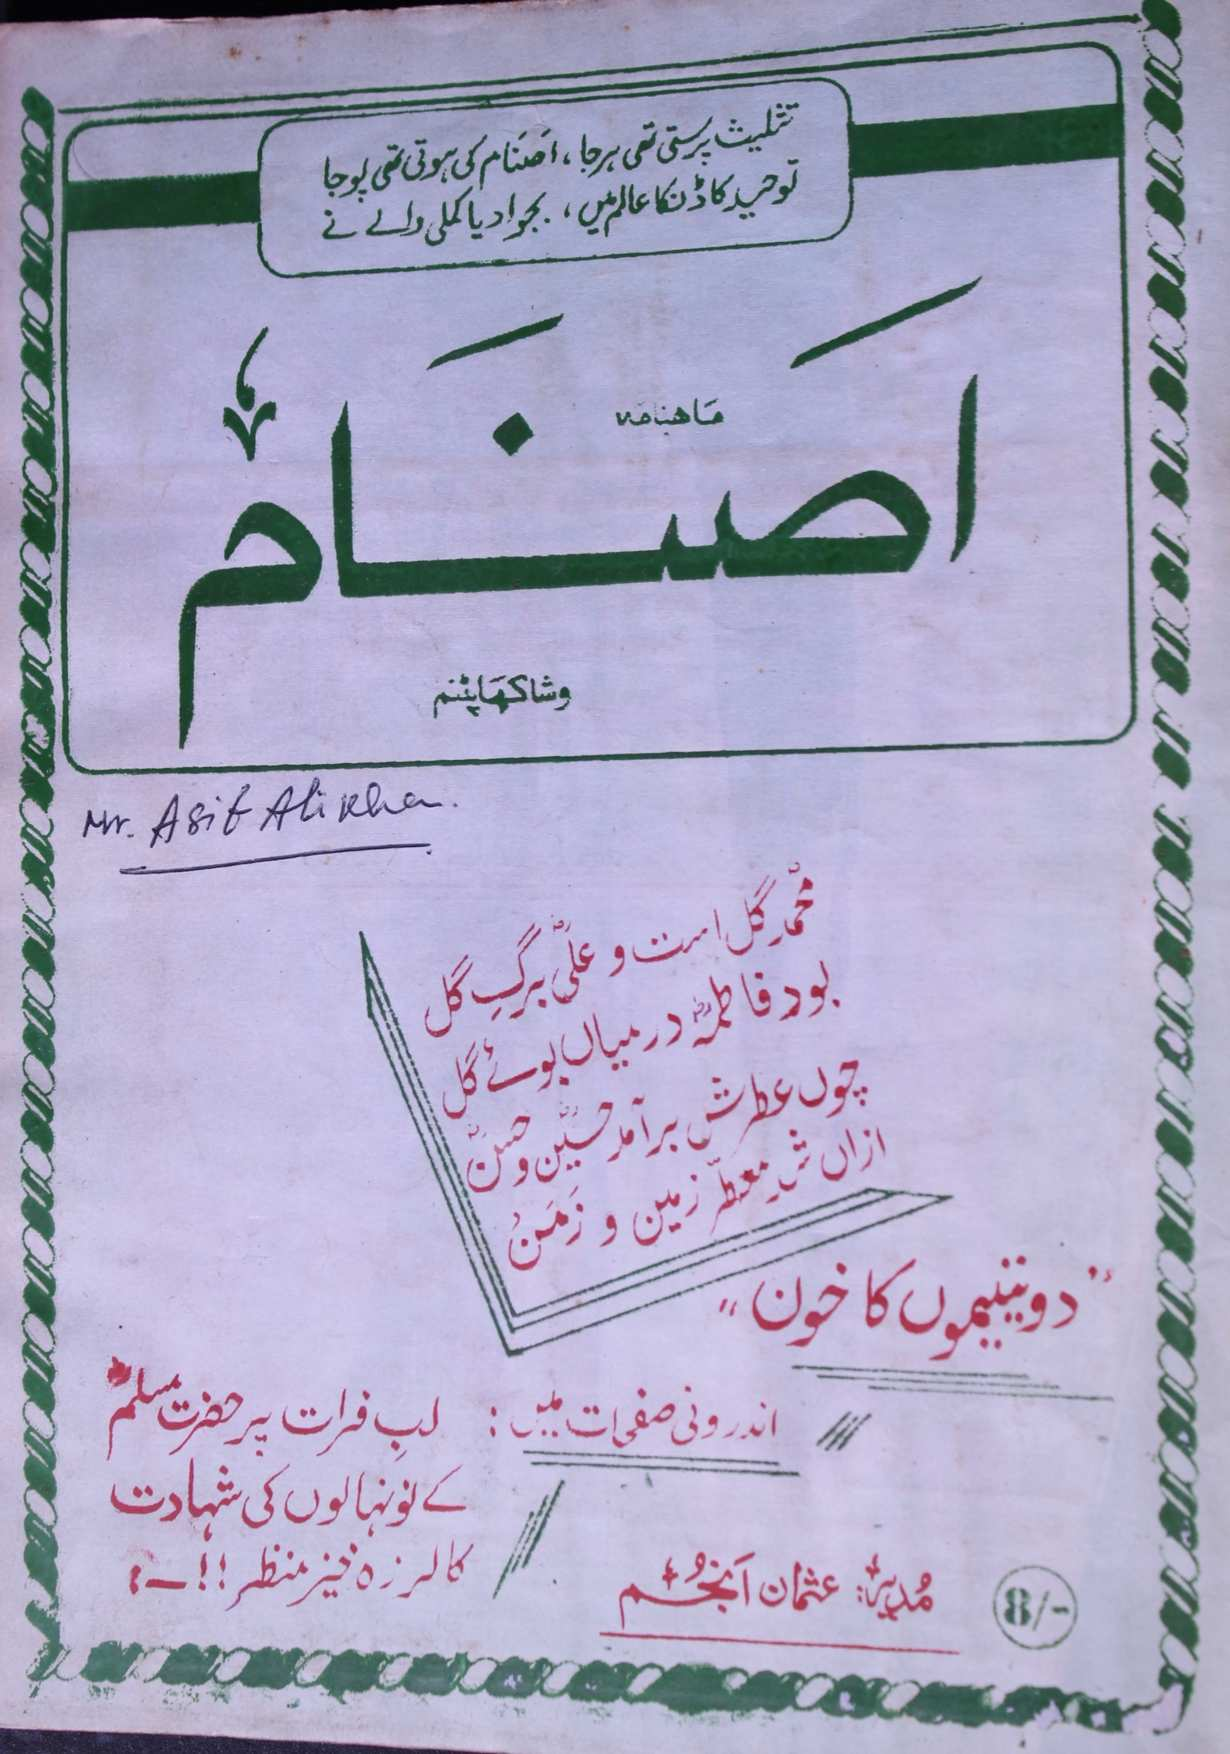 تثلیث پرستی تھی ہر جا، اَصنَام کی ہوتی تھی پوجا
توحید کا ڈنکا عالم میں، بجوا دیا کملی والے نے
مَاهنامہ
اَصنَام
وشاکھاپٹنم
Mr. Asif Ali Khan.
محمدؐ گل است و علیؓ برگِ گل
بود فاطمہؓ درمیاں بوئے گل
چوں عطرش برآمد حسینؓ و حسنؓ
ازاں شد معطّر زمین و زَمَنُ
"دو یتیموں کا خون"
اندرونی صفحات میں: لبِ فرات پر حضرت مسلمؓ
کے نونہالوں کی شہادت
کا لرزہ خیز منظر!!ـ:
مُدیر: عثمان اَنجُم
8/-